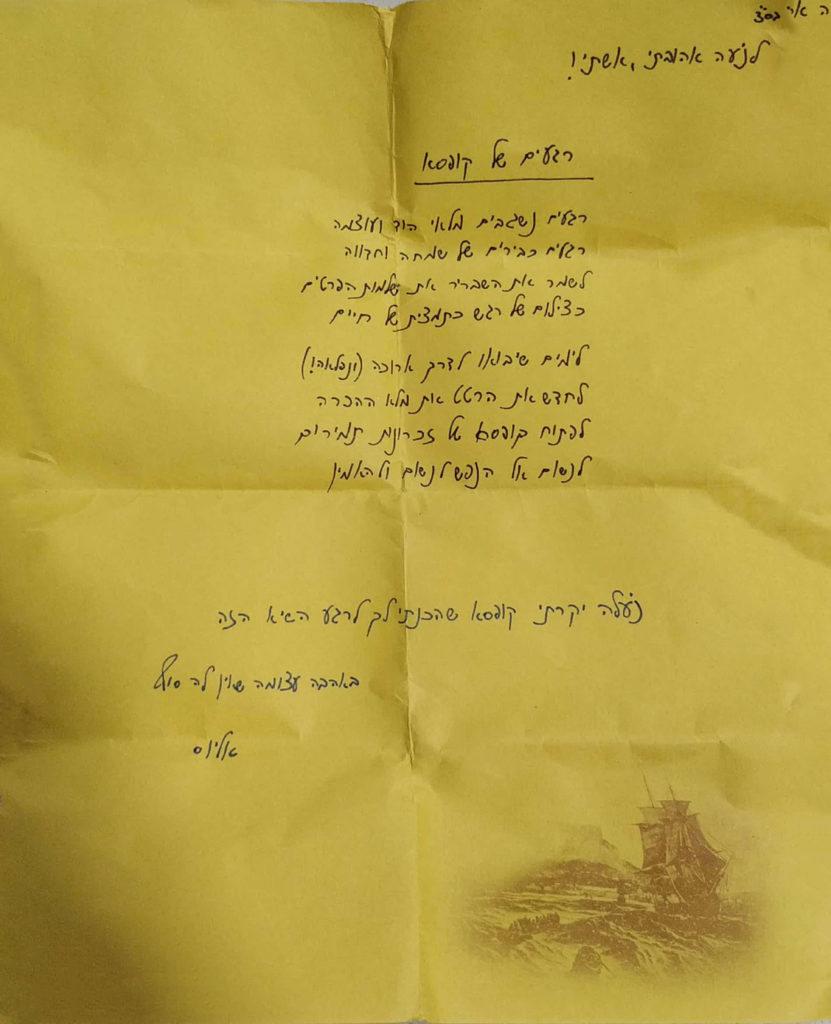 בס"ד
לנעה אהובתי, אשתי!
רגעים של קופסא
רגעים נשגבים מלאי הוד ועוצמה
רגעים כבירים של שמחה וחדווה
לשמר את השבריר את שלמות הפרטים
כצילום של רגש כתמצית של חיים
לימים שיבואו לדרך ארוכה (ונפלאה!)
לחדש את הרטט את מלא ההכרה
לפתוח קופסא של זכרונות תמירים
לנשום אל הנפש לנשום ולהאמין
יקרתי קופסא שהכנתי לך לרגע השיא הזה
באהבה עצומה שאין לה סוף